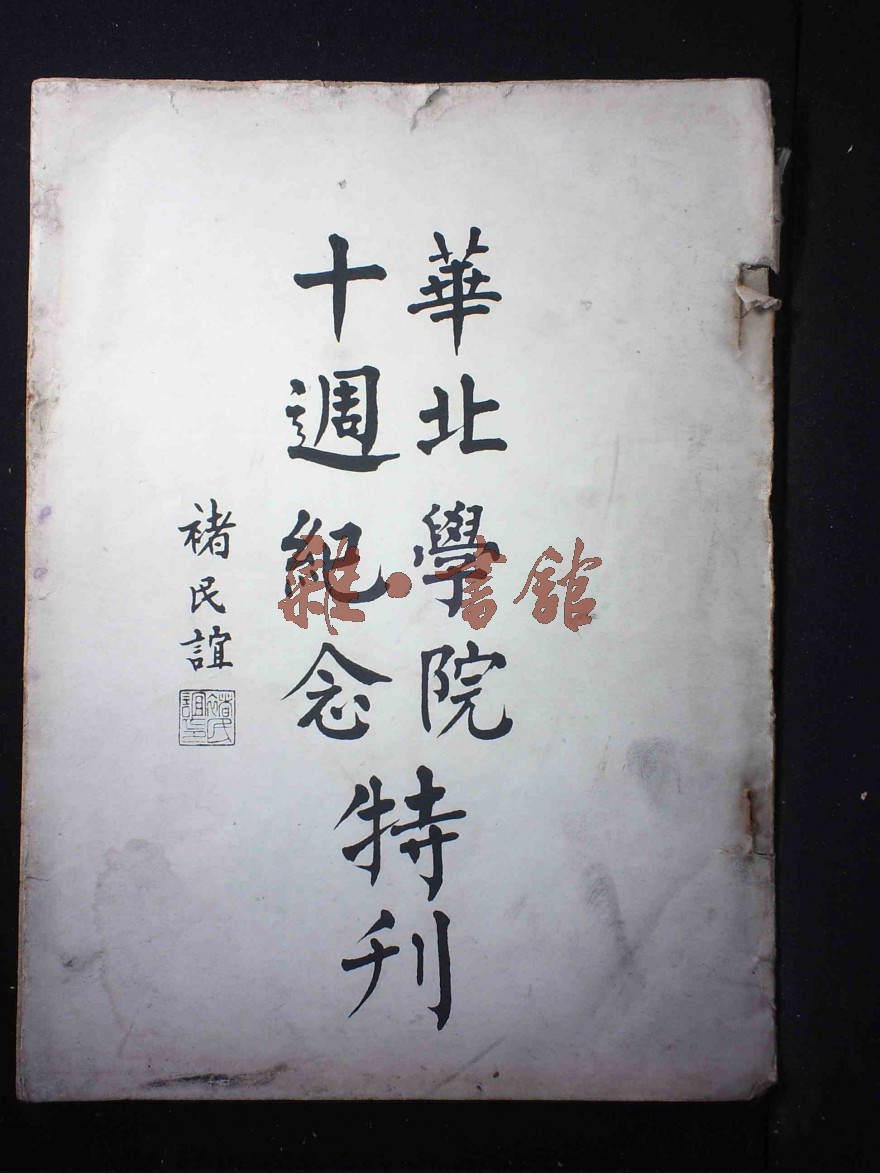 華北學院
十週紀念
特刊
褚民誼
雜·書館